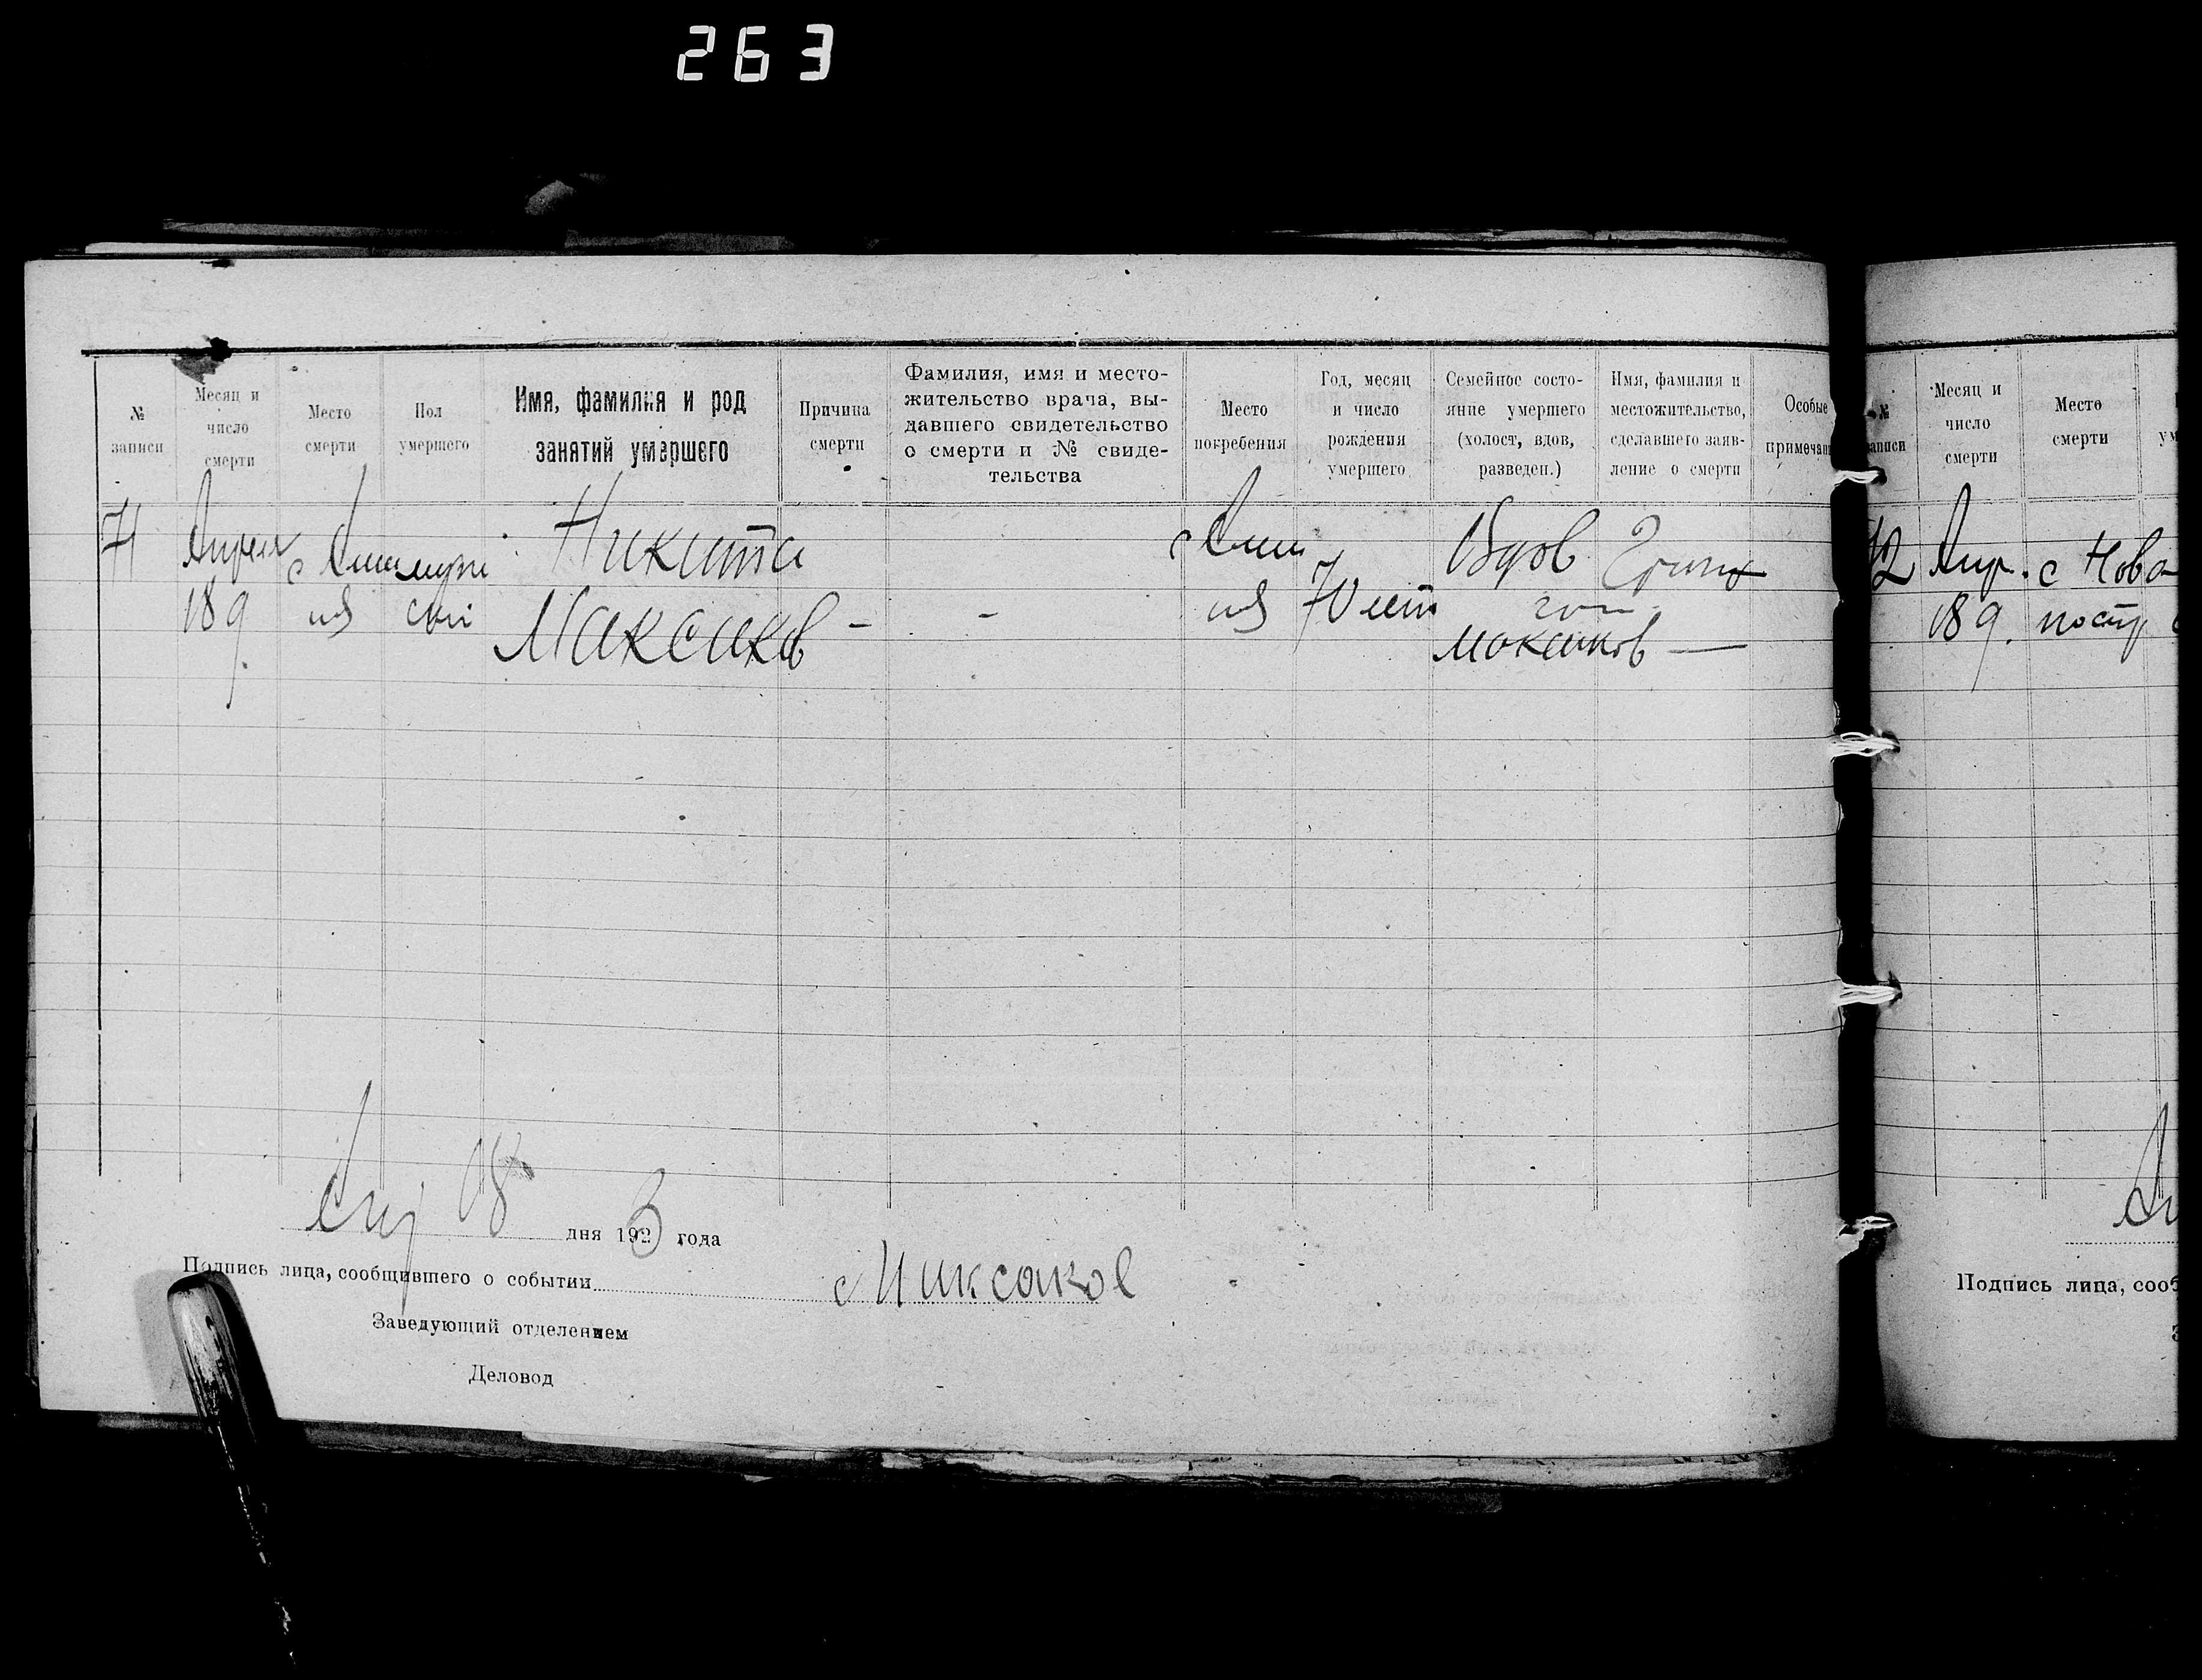 263
№ записи
Месяц и число смерти
Место смерти
Пол умершего
Имя, фамилия и род занятий умершего
Причина смерти
Фамилия, имя и место-
жительство врача, вы-
давшего свидетельство
о смерти и № свиде-
тельства
Место погребения
Год, месяц и число рождения умершего
Семейное состо-
яние умершего
(холост, вдов,
разведен.)
Имя, фамилия и
местожительство,
сделавшего заяв-
ление о смерти
Особые
примечан
Апреля
18 д.
Никита
Максаков - -
70 лет
Вдов
Максаков —
Апр 18 дня 1923 года
Подпись лица, сообщившего о событии Максаков
Заведующий отделением
Деловод
№ записи
Месяц и число смерти
Место смерти
12 Апр. с Ново
18 д.
Подпись лица, сооб